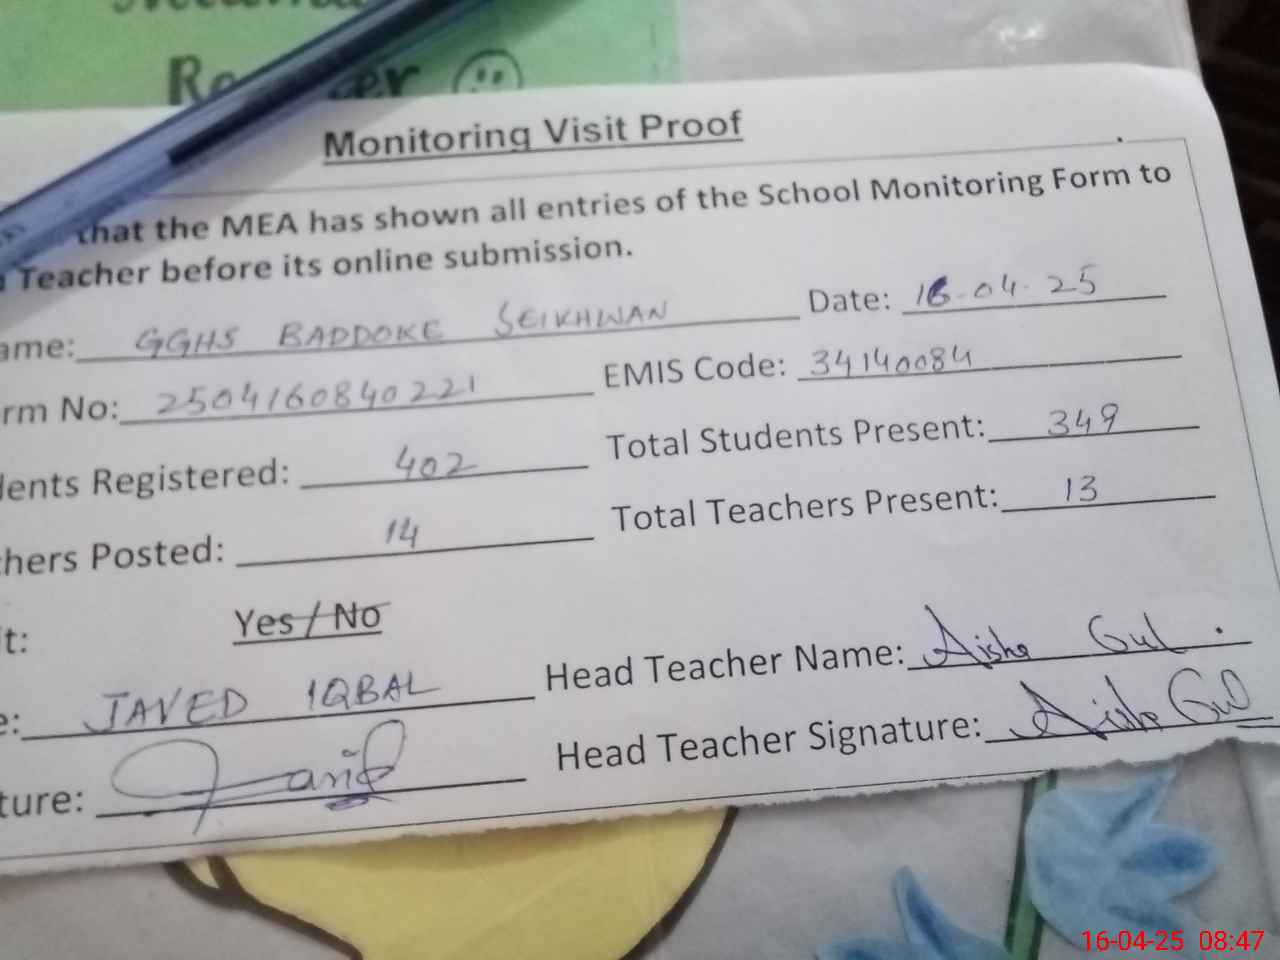 Monitoring Visit Proof
that the MEA has shown all entries of the School Monitoring Form to
Teacher before its online submission.
ame: GGHS BADDOKE SEIKHWAN Date: 16-04-25
rm No: 2504160840221 EMIS Code: 34140084
dents Registered: 402 Total Students Present: 349
hers Posted: 14 Total Teachers Present: 13
it: Yes / No
e: JAVED IQBAL Head Teacher Name: Aisha Gul.
ture: Head Teacher Signature: Aisha Gul
16-04-25 08:47